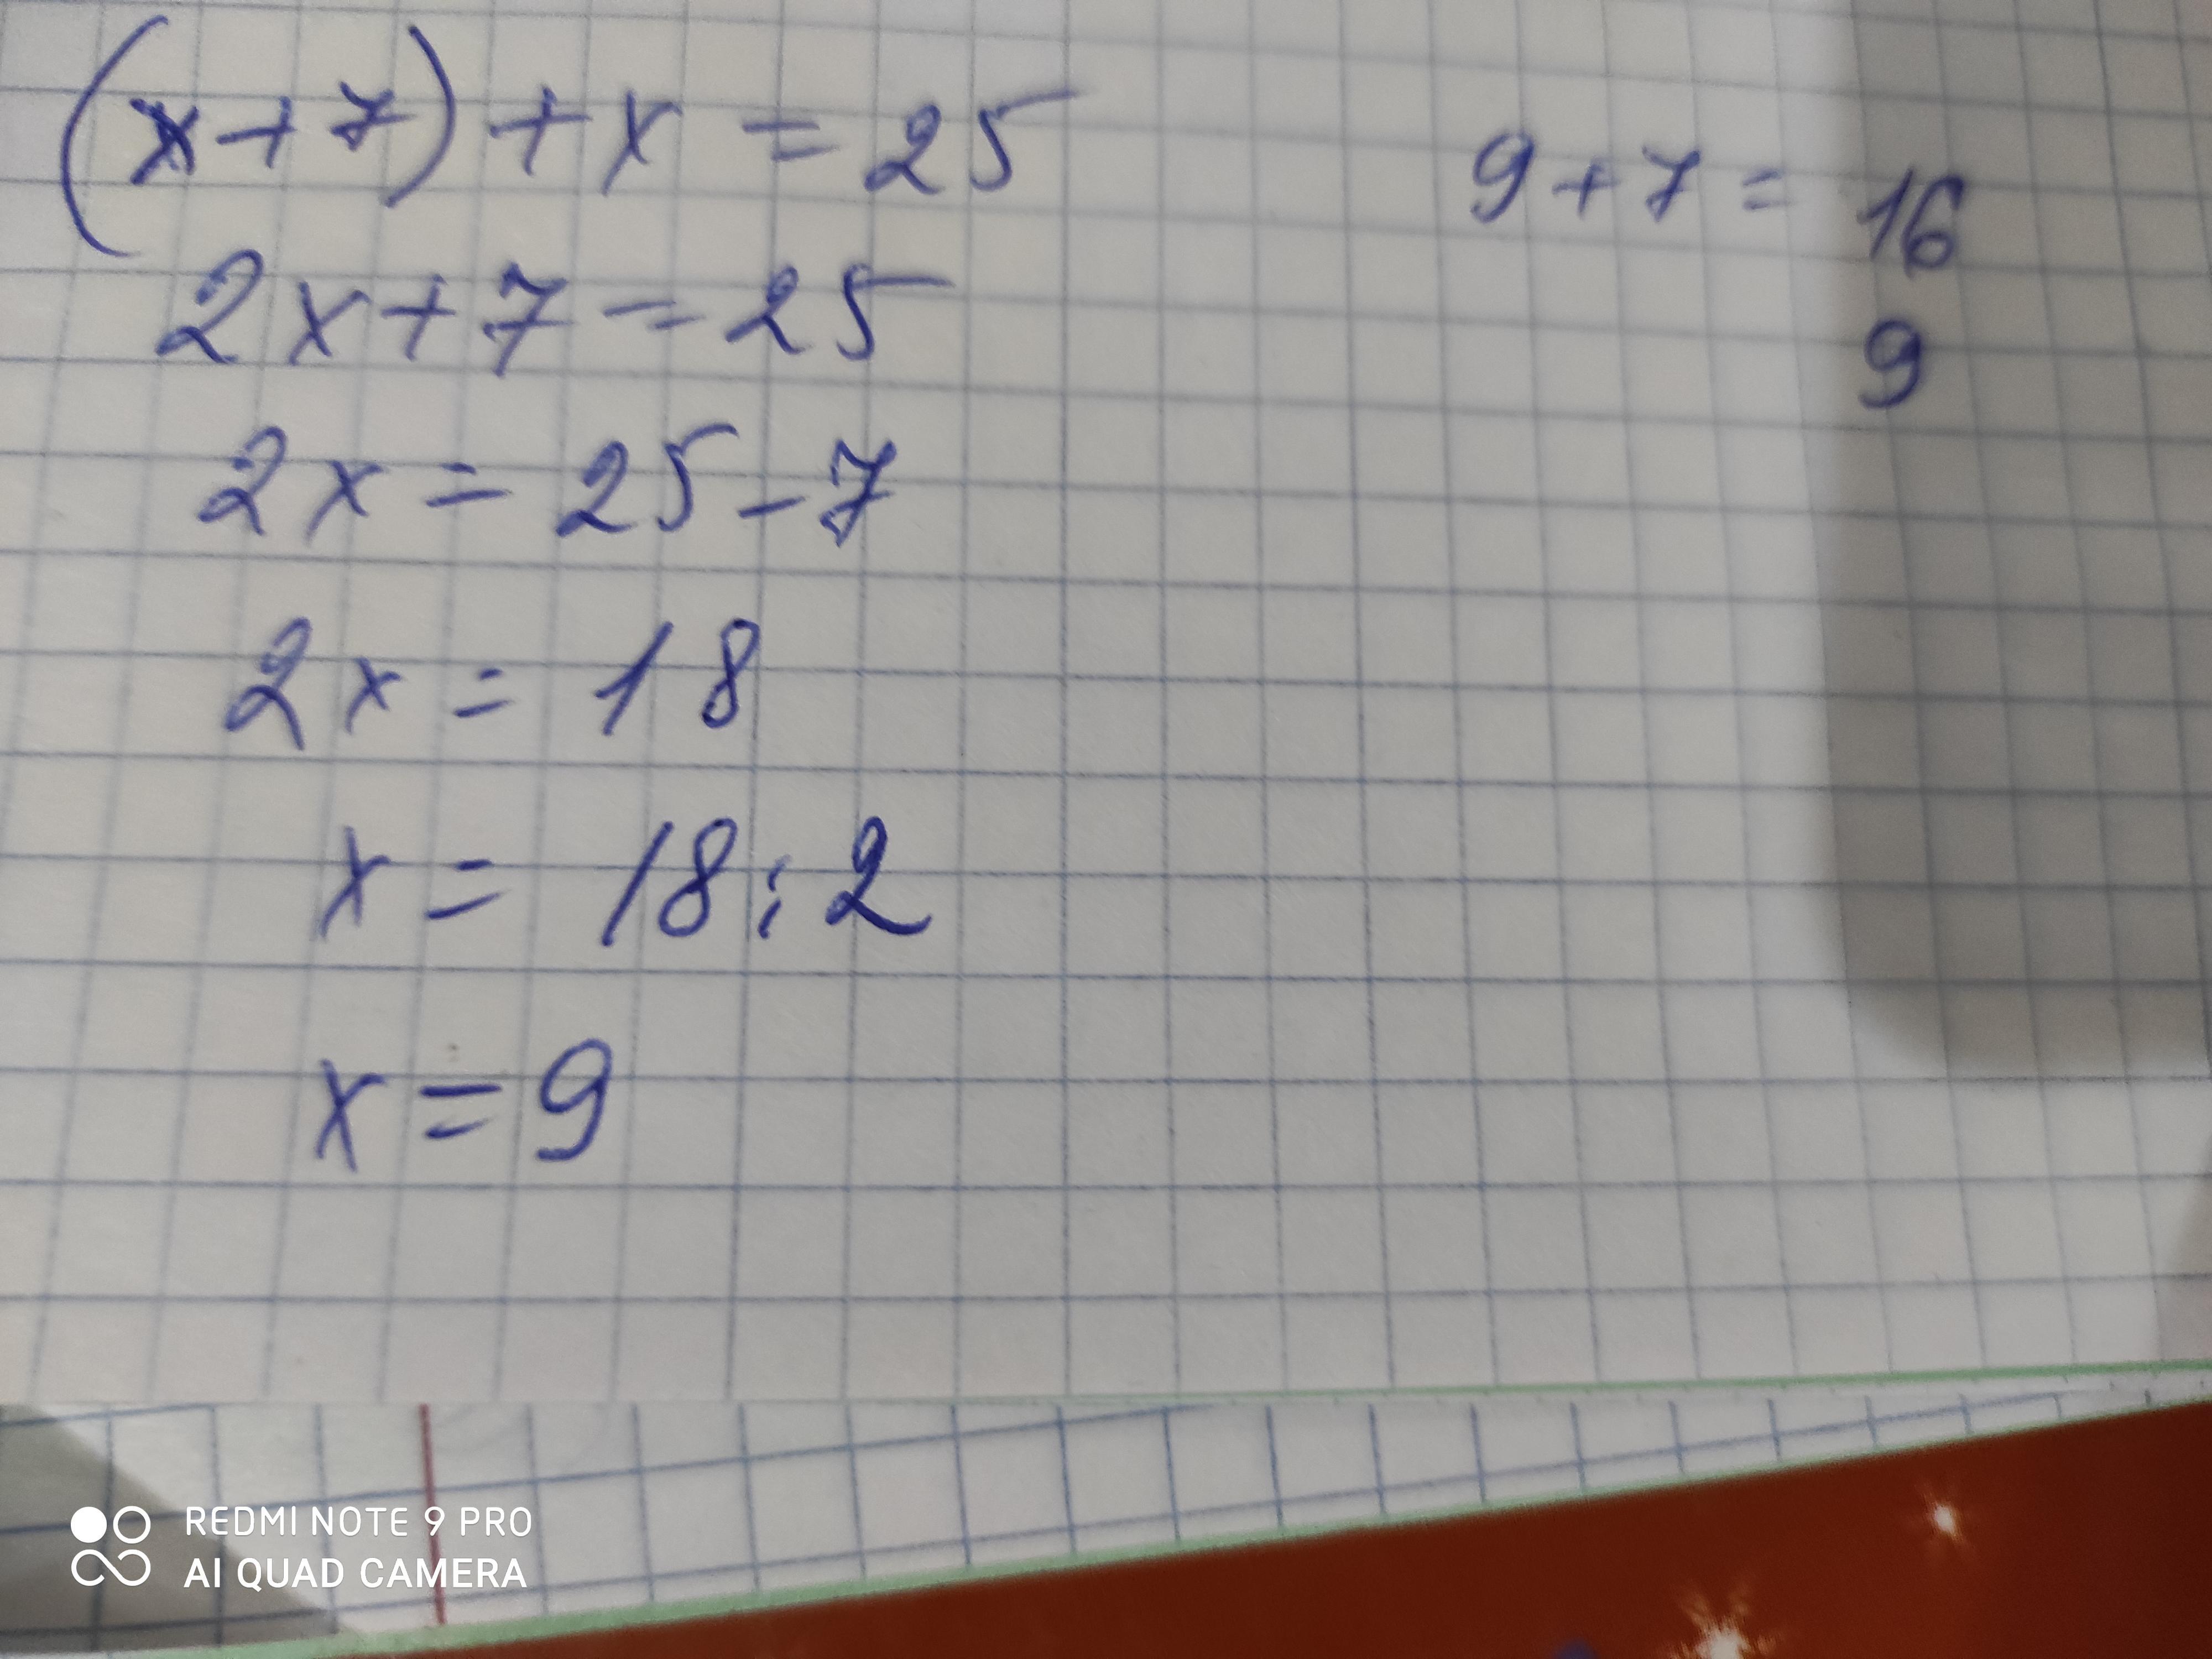 (x+7)+x=25
2x+7=25
2x=25-7
2x=18
x=18:2
x=9
9+7=16
9
REDMI NOTE 9 PRO
AI QUAD CAMERA